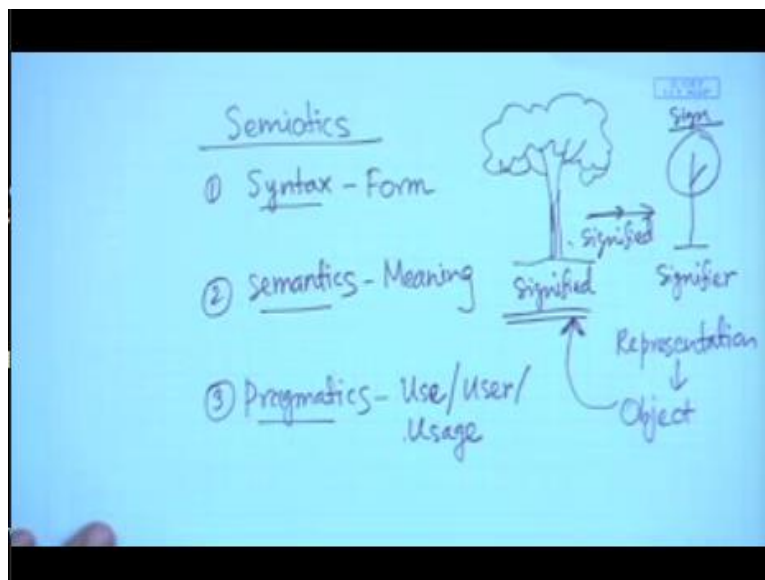 Semiotics
① Syntax - Form
② Semantics - Meaning
③ Pragmatics - Use/User/
Usage
Signified
Signified
Sign
Signifier
Representation
Object